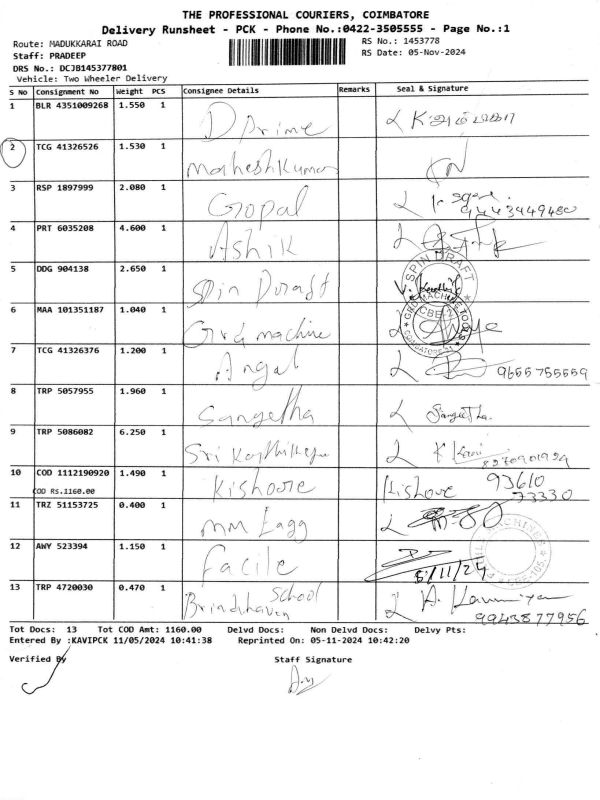 THE PROFESSIONAL COURIERS, COIMBATORE
Delivery Runsheet - PCK - Phone No.:0422-3505555 - Page No.:1
Route: MADUKKARAI ROAD RS No.: 1453778
Staff: PRADEEP RS Date: 05-Nov-2024
DRS No.: DCJB145377801
Vehicle: Two Wheeler Delivery
S No Consignment No Weight PCS Consignee Details Remarks Seal & Signature
1 BLR 4351009268 1.550 1 D Prime
2 TCG 41326526 1.530 1 Maheshkumar
3 RSP 1897999 2.080 1 Gopal 9443949480
4 PRT 6035208 4.600 1 Ashik
5 DDG 904138 2.650 1 Spin Draft SPIN DRAFT
6 MAA 101351187 1.040 1 machine
7 TCG 41326376 1.200 1 Angal 9655755559
8 TRP 5057955 1.960 1 Sangetha Sangeetha.
9 TRP 5086082 6.250 1 Sri
10 COD 1112190920 1.490 1 Kishoore Kishore 93610
COD Rs.1160.00 73330
11 TRZ 51153725 0.400 1 MM
12 AWY 523394 1.150 1 Facile 5/11/24
13 TRP 4720030 0.470 1 School
9943877956
Tot Docs: 13 Tot COD Amt: 1160.00 Delvd Docs: Non Delvd Docs: Delvy Pts:
Entered By :KAVIPCK 11/05/2024 10:41:38 Reprinted On: 05-11-2024 10:42:20
Verified By Staff Signature